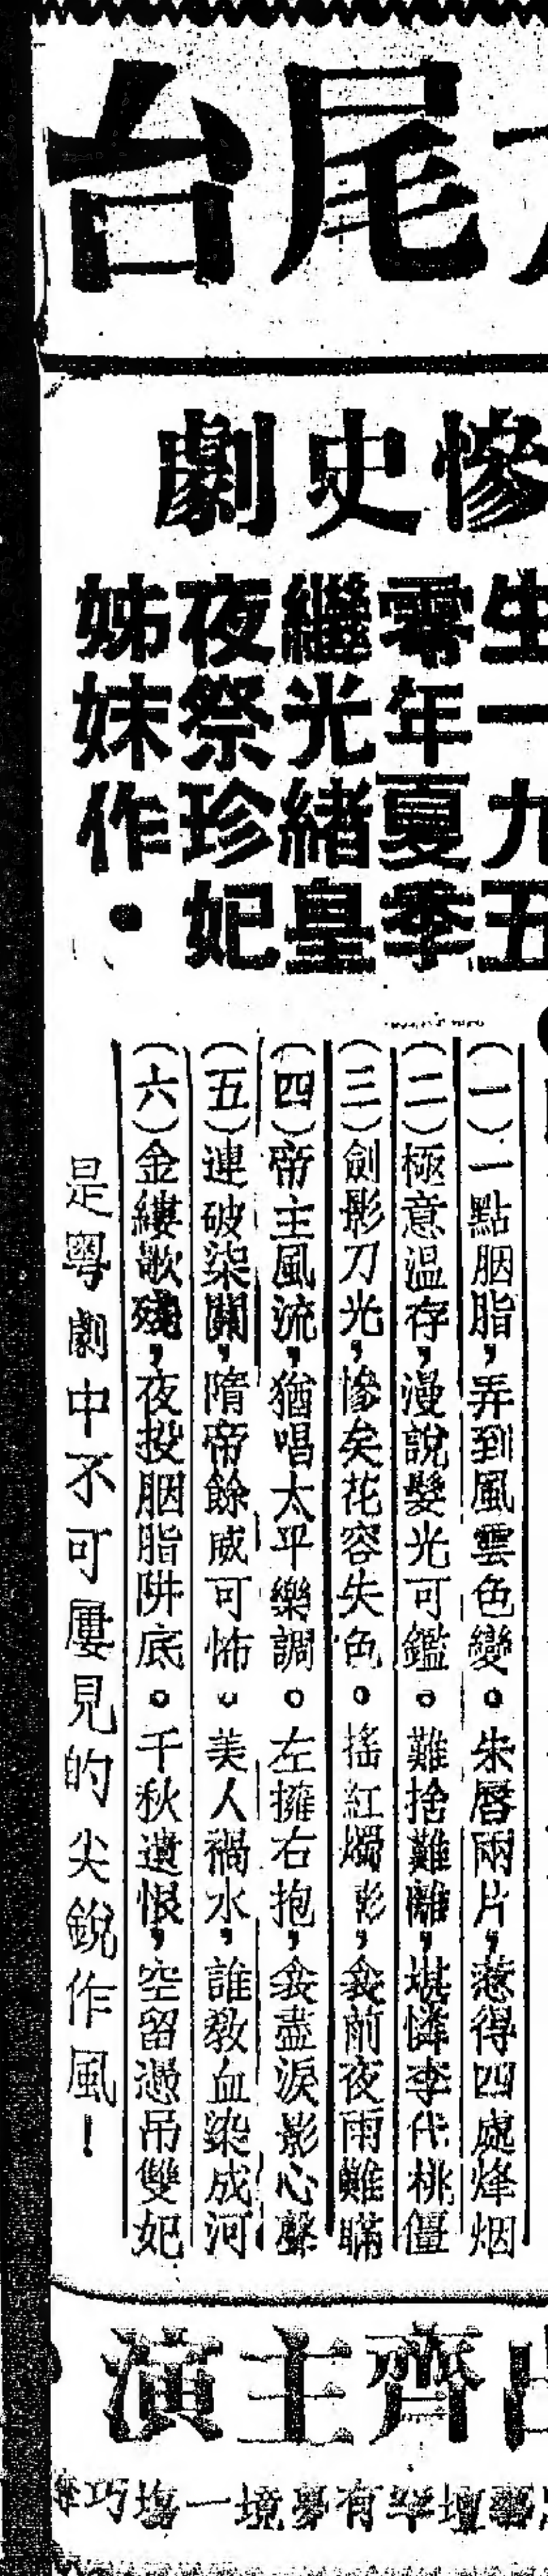 尾台
慘史劇
生一九五
零年夏季
繼光緒皇
夜祭珍妃
姊妹作•
(一)一點胭脂,弄到風雲色變。朱唇兩片,惹得四處烽烟
(二)極意溫存,漫說髮光可鑑。難捨難離,堪憐李代桃僵
(三)劍影刀光,慘矣花容失色。搖紅燭影,衾前夜雨難瞞
(四)帝主風流,猶唱太平樂調。左擁右抱,衾盡淚影心聲
(五)連破柒關,隋帝餘威可怖。美人禍水,誰教血染成河
(六)金縷歌殘,夜投胭脂阱底。千秋遺恨,空留憑吊雙妃
是粵劇中不可屢見的尖銳作風!
齊主演
藝壇罕有夢境一塲巧